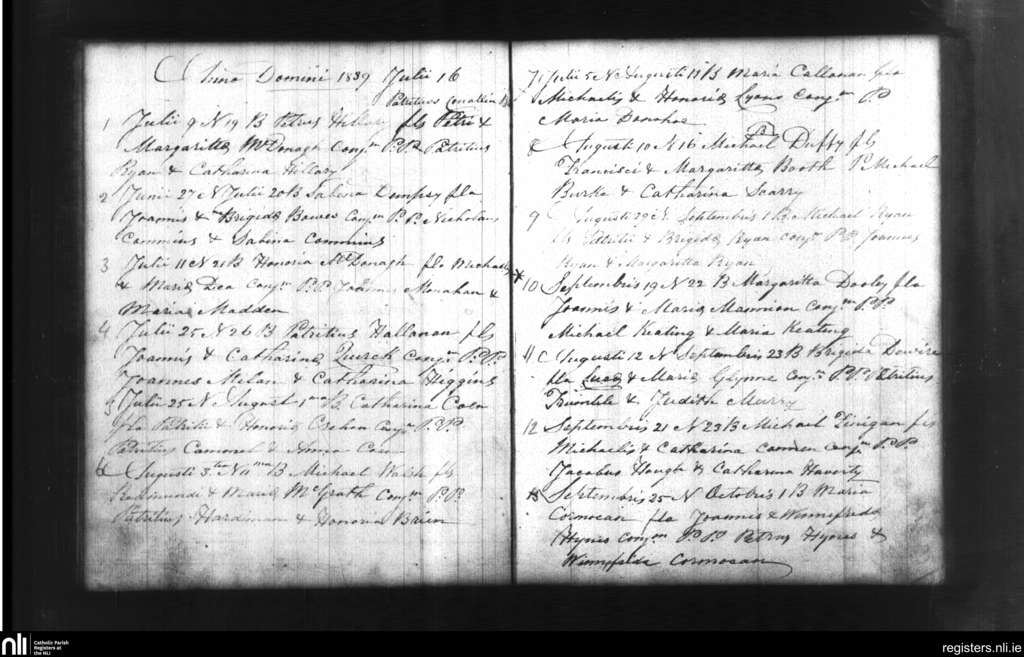 Anno Domini 1839 Julii 16
Patritius
1 Julii 9 N 19 B Petrus Hillary fls Petri &
Margaritta McDonagh conjm P.P. Patritius
Ryan & Catharina Hillary
2 Junii 27 N Julii 20 B Sabina Dempsy fla
Joannis & Brigida Bowes conjm P.P. Nicholas
Commins & Sabina Commins
3 Julii 11 N 21 B Honoria McDonagh fla Michaelis
& Maria Dea conjm P.P. Joannes Monahan &
Maria Madden
4 Julii 25 N 26 B Patritius Hallanan fls
Joannis & Catharina Quirck conjm P.P.
Joannes Melan & Catharina Higgins
5 Julii 25 N August 1 B Catharina Coen
fla Patritii & Honoria conjm P.P.
Patritius & Anna
6 Augusti 3 N 11 B Michael Walsh fls
& Maria McGrath conjm P.P.
Patritius Hardiman & Honoria Brien
7 Julii 5 N Augusti 15 B Maria Callanan fla
Michaelis & Honoria Lyons conjm P.P
Maria Donahoe
8 Augusti 10 N 16 Michael B Duffy fls
Francisci & Margaritta Booth P. Michael
Burke & Catharina Scarry
9 Augusti 29 N Septembris 1 B Michael Ryan
fls Patritii & Brigida Ryan conjm P.P. Joannes
Ryan & Margaritta Ryan
* 10 Septembris 19 N 22 B Margaritta Dooley fla
Joannis & Maria Mannion conjm P.P.
Michael Keating & Maria Keating
11 Augusti 12 N Septembris 23 B Brigida Dowire
fla Lucas & Maria Glynne conjm P.P. Patritius
Trimble & Judith Murry
12 Septembris 21 N 23 B Michael Finigan fls
Michaelis & Catharina conjm P.P.
Jacobus Hough & Catharina Haverty
13 Septembris 25 N Octobris 1 B Maria
Cormocan fla Joannis & Winnefrida
Hynes conjm P.P. Petrus Hynes &
Winnefrida Cormocan
nli
Catholic Parish
Registers at
the NLI
registers.nli.ie